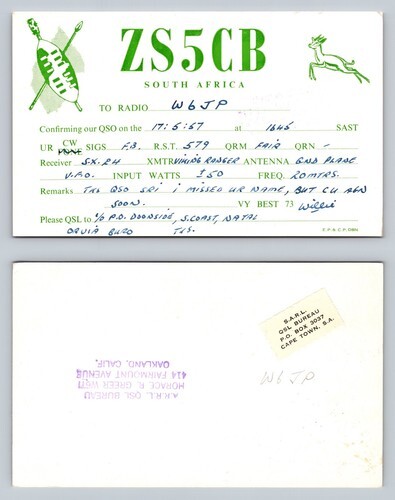 ZS5CB
SOUTH AFRICA
TO RADIO W6JP
Confirming our QSO on the 17:5:57 at 1645 SAST
UR CW FONE SIGS F.B. R.S.T. 579 QRM FAIR QRN -
Receiver SX-24 XMTR VIKING RANGER ANTENNA GND PLANE
V.F.O. INPUT WATTS ± 50 FREQ. 20MTRS.
Remarks TKS QSO SRI I MISSED UR NAME, BUT CU AGN
SOON. VY BEST 73 Willie
Please QSL to % P.O. DOONSIDE, S.COAST, NATAL
OR VIA BURO TKS.
S.A.R.L.
QSL BUREAU
P.O. BOX 3037
CAPE TOWN, S.A.
W6JP
A.R.R.L. QSL BUREAU
HORACE R. GREER W6TI
414 FAIRMOUNT AVENUE
OAKLAND, CALIF.